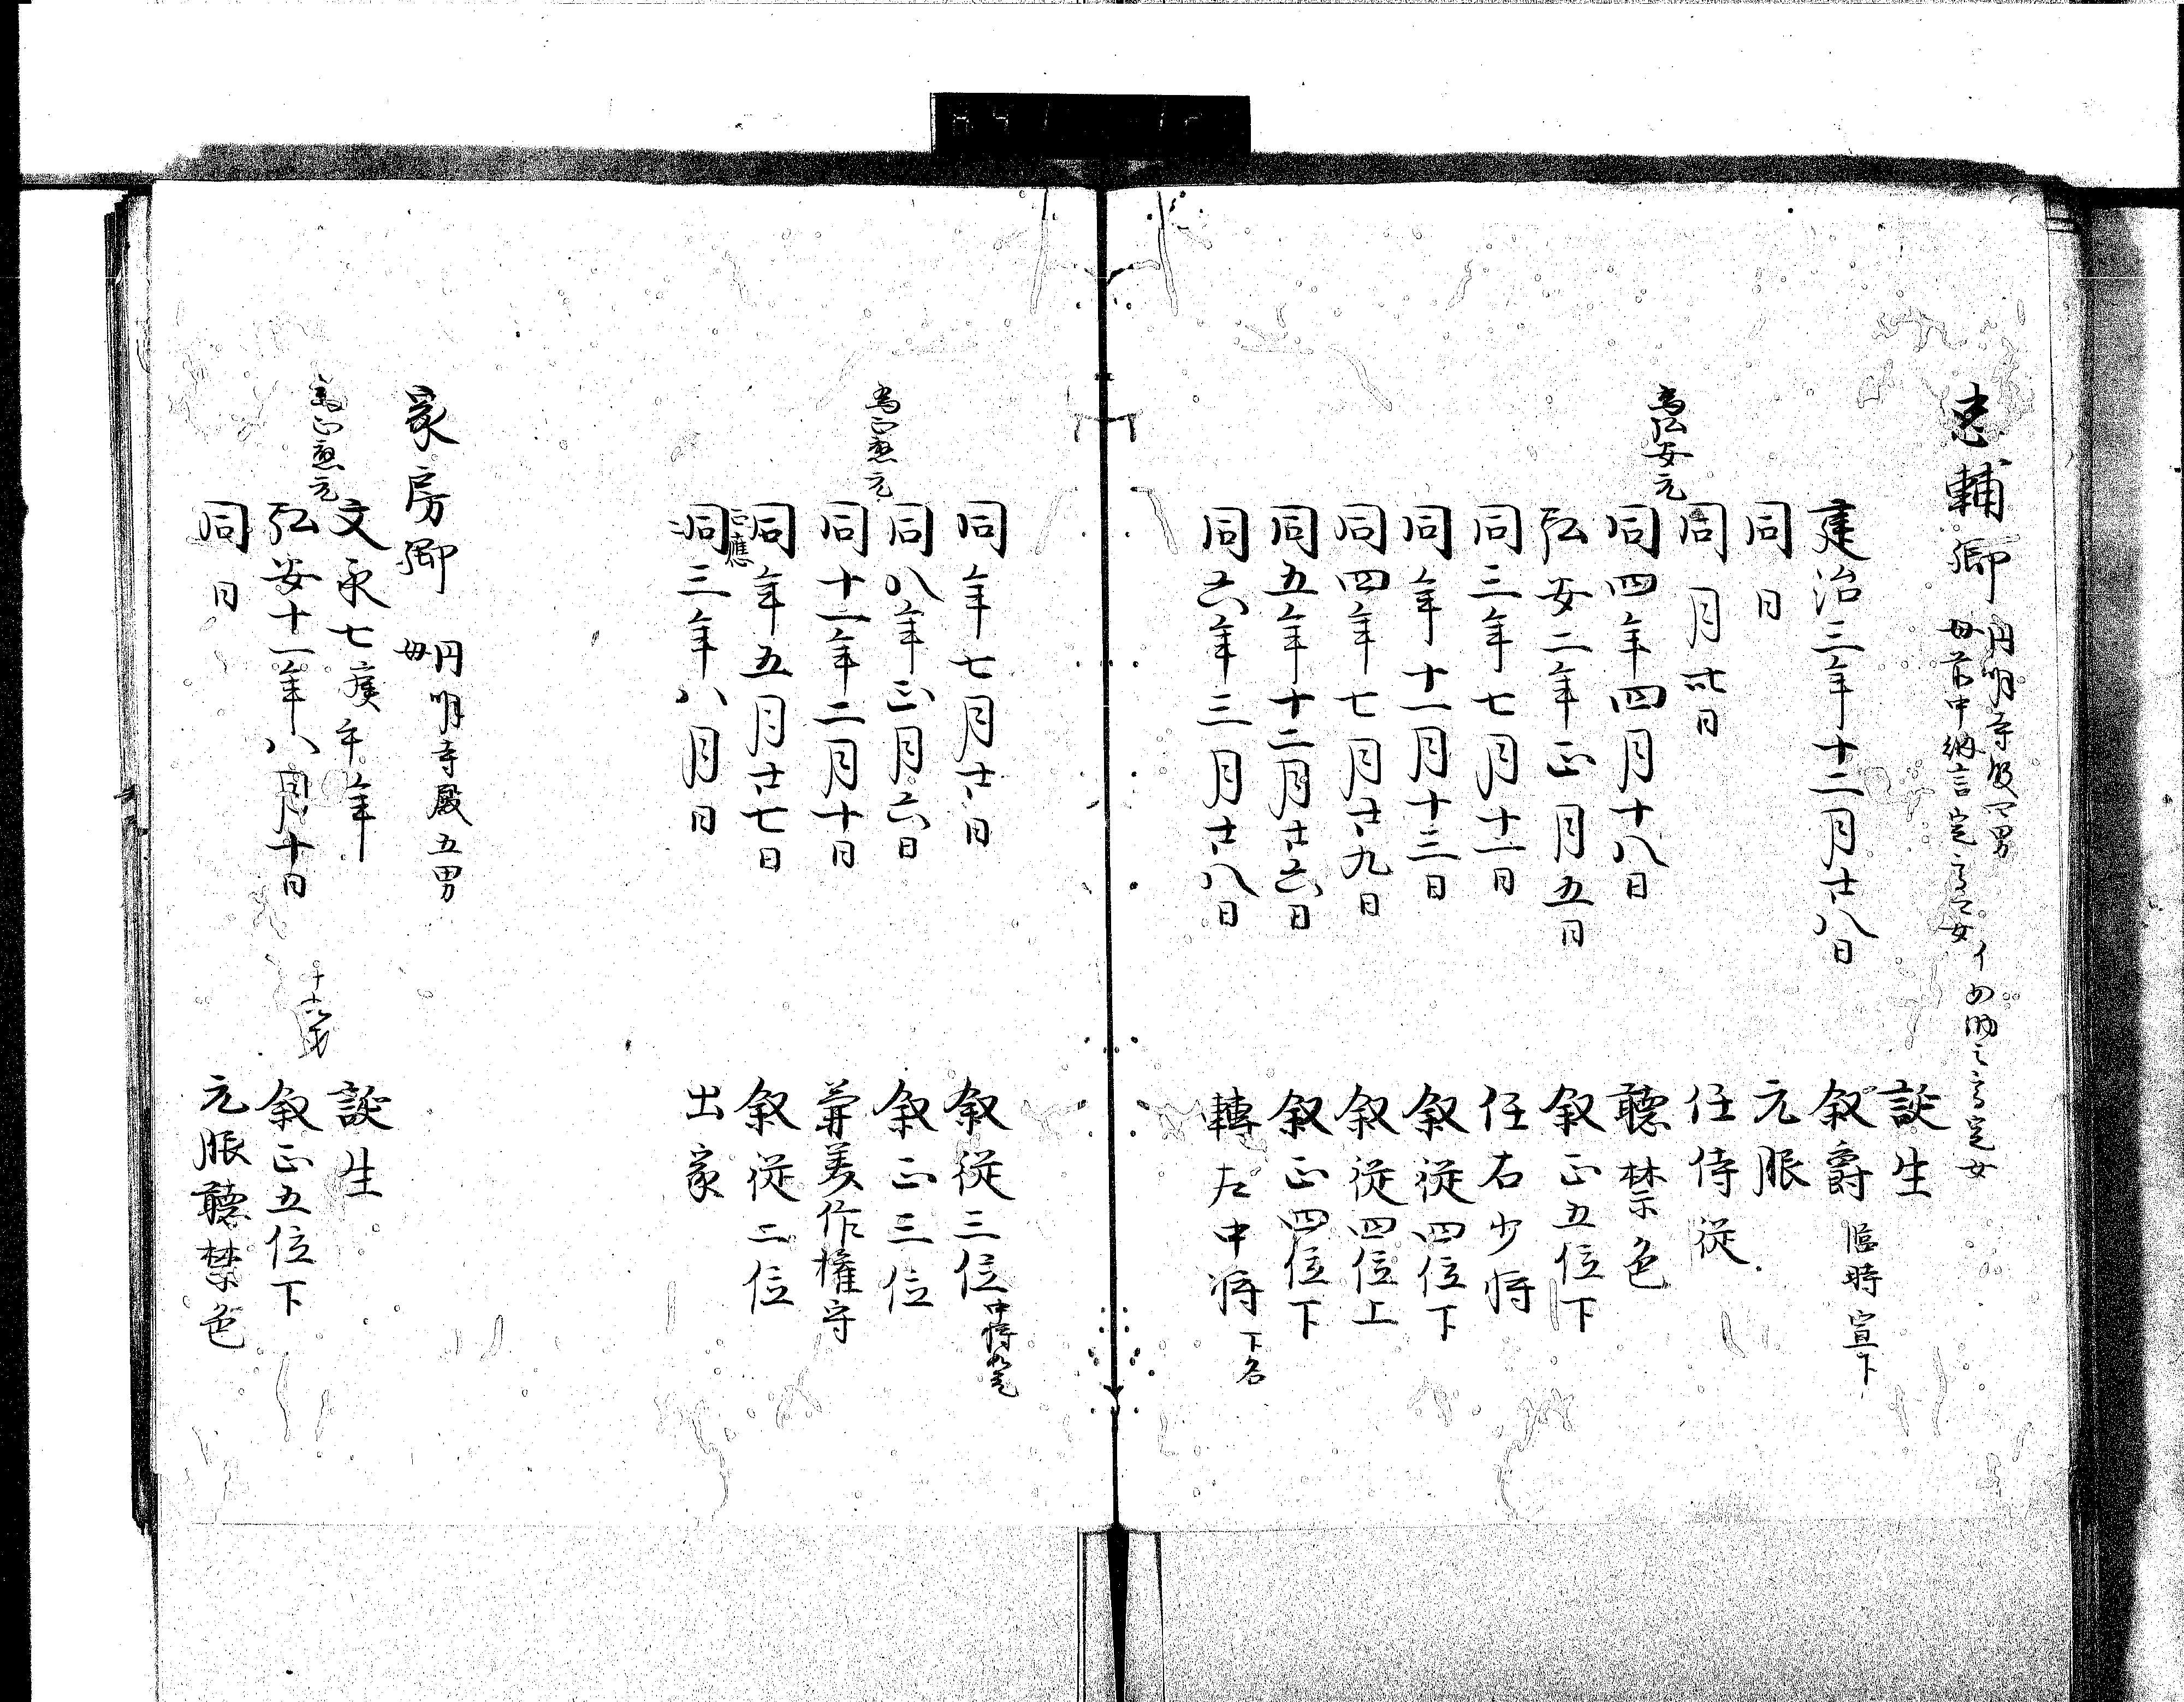 忠輔卿 円明寺殿四男
母前中納言定高女 イ
誕生
建治三年十二月廿八日 叙爵 臨時宣下
同日 元服
同月卅日 任侍従
為弘安元
同四年四月十八日 聴禁色
弘安二年正月五日 叙正五位下
同三年七月十一日 任右少将
同年十一月十三日 叙従四位下
同四年七月廿九日 叙従四位上
同五年十二月廿六日 叙正四位下
同六年三月廿八日 轉左中将 下名
同年七月廿日 叙従三位 中将
同八年正月六日 叙正三位
為正應元
同十一年二月十日 兼美作権守
同年五月廿七日 叙従二位
正應
同三年八月日 出家
家房卿 円明寺殿五男
母
文永七庚午年 誕生
為正應元
弘安十一年八月十日 叙正五位下
同日 元服聴禁色